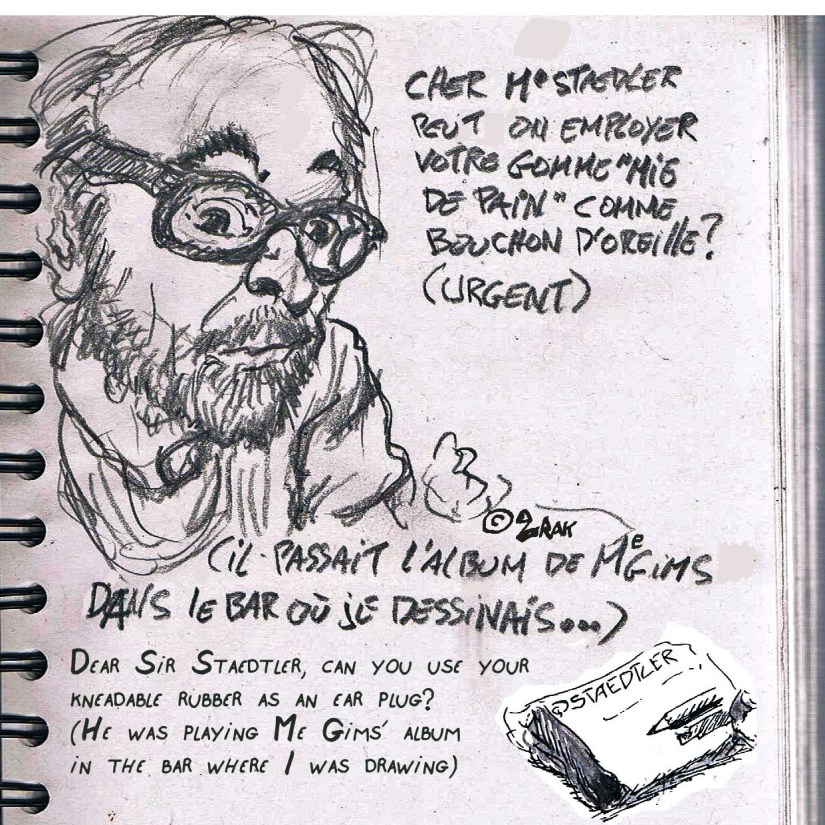 CHER Mr STAEDLER
PEUT ON EMPLOYER
VOTRE GOMME "MIE
DE PAIN" COMME
BOUCHON D'OREILLE?
(URGENT)
© 2RAK
(IL PASSAIT L'ALBUM DE Me GIMS
DANS LE BAR OÙ JE DESSINAIS...)
DEAR SIR STAEDTLER, CAN YOU USE YOUR
KNEADABLE RUBBER AS AN EAR PLUG?
(HE WAS PLAYING ME GIMS' ALBUM
IN THE BAR WHERE I WAS DRAWING)
STAEDTLER